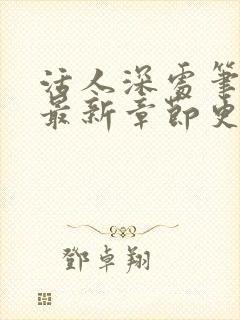 活人深处笔
最新章节史
鄧卓翔